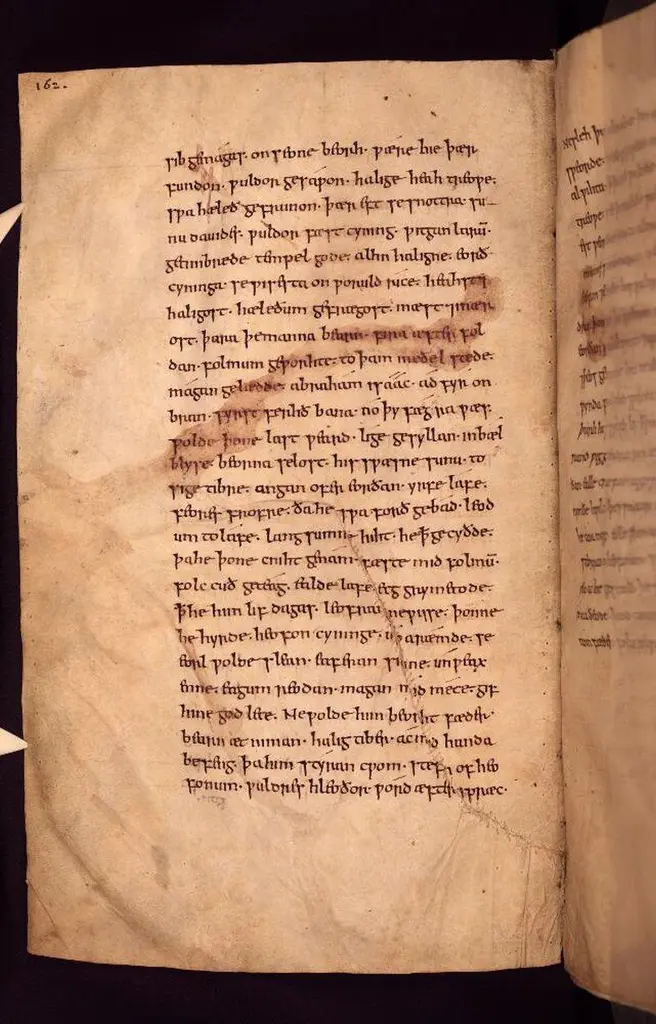 162.
sib gemagas. on seone beorh. wære hie þær
fundon. wuldor gesawon. halige heah treowe.
swa hæleð gefrunon. þær eft se snottra su
nu dauides. wuldor fæst cyning. witgan larum̄.
getimbrede tempel gode. alhn haligne. eorð
cyninga se wisesta on woruld rice. heahst ⁊
haligost. hæleðum gefrægost. mæst ⁊ mær
ost. þara þe manna bearn. fira æfter fol
dan. folmum geworhte. to þam meðel stede.
magan gelædde. abraham isáác. ad fyr on
bran. fyrst ferhð bana. no þy fægra wæs.
wolde þone last weard. lige gesyllan. in bæl
blyse. beorna selost. his swæsne sunu. to
sige tibre. angan ofer eorðan. yrfe lafe.
feores frofre. ða he swa forð gebád. leod
um to lafe. lang sumne hiht. he þ̄ gecyðde.
þa he þone cniht genam. fæste mid folmū.
folc cuð geteag. ealde lafe. ecg grymetode.
þ̄ he him lif dagas. leofran ne wisse. þonne
he hyrde. heofon cyninge. up aræmde. se
eorl wolde slean. eaferan sinne. unweax
enne. eagum reodan. magan mid mece. gif
hine god lete. Ne wolde him beorht fæder.
bearn æt niman. halig tiber. ac mid handa
befeng. þa him styran cwom. stefn of heo
fonum. wuldres hleoðor. word æfter spræc.